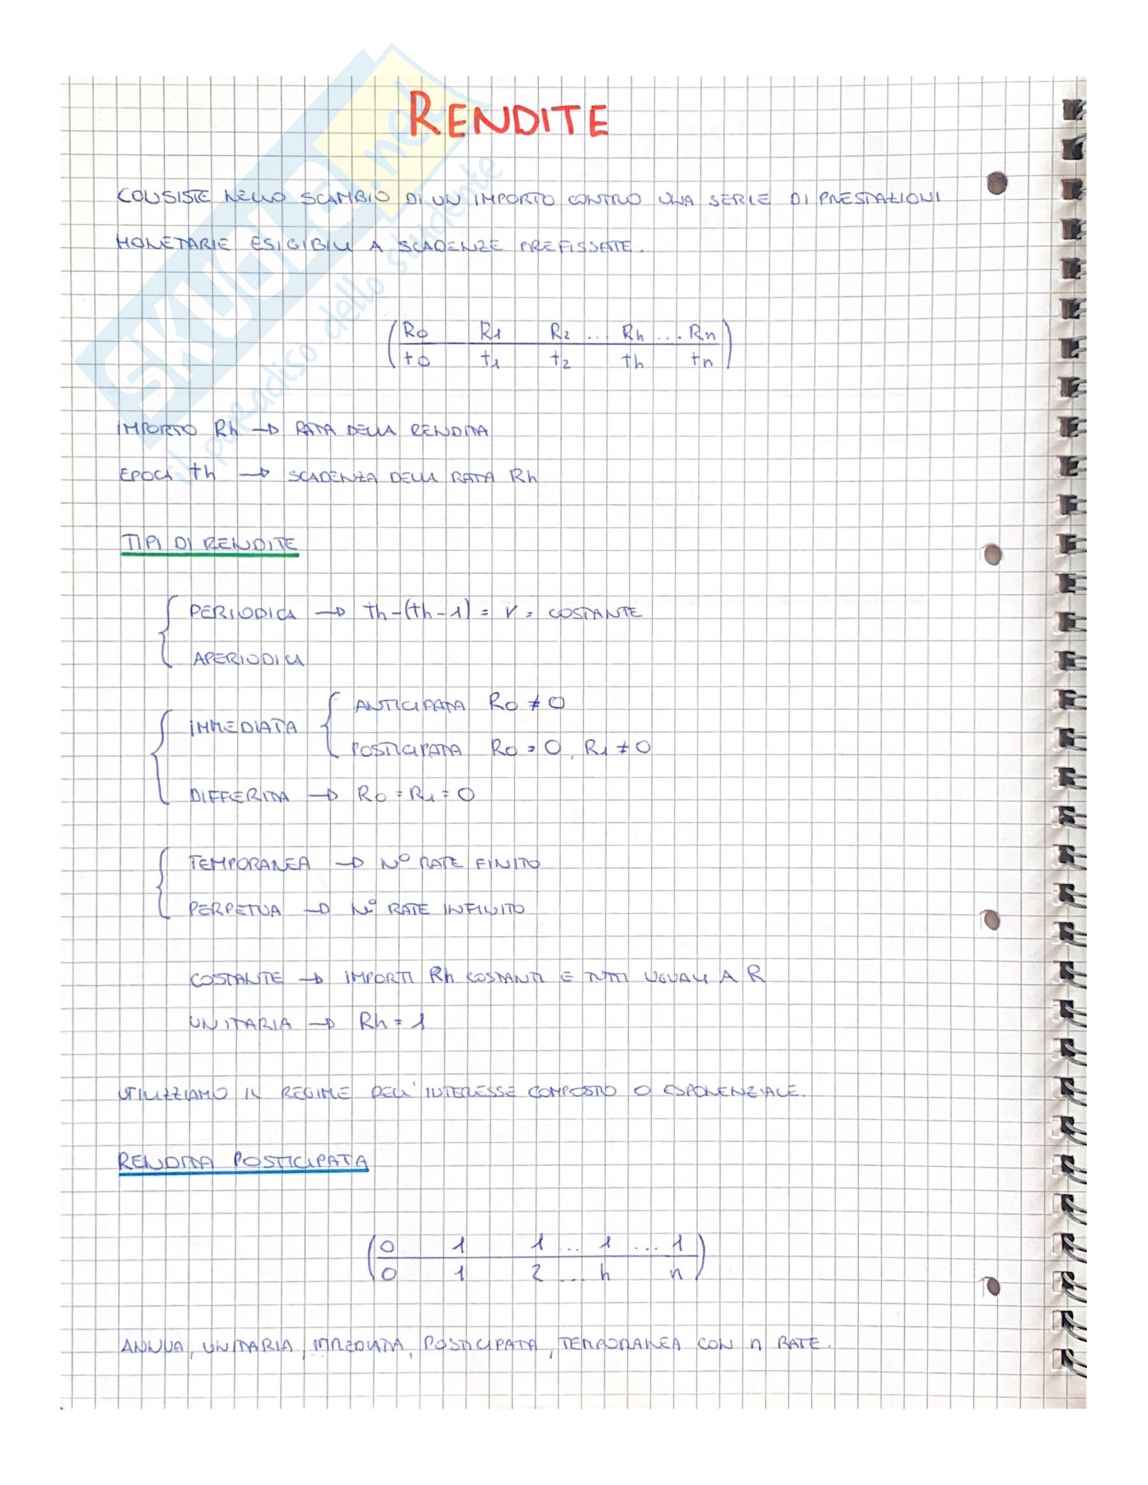 RENDITE
CONSISTE NELLO SCAMBIO DI UN IMPORTO CONTRO UNA SERIE DI PRESTAZIONI
MONETARIE ESIGIBILI A SCADENZE PREFISSATE.
R0 R1 R2 ... Rh ... Rn
t0 t1 t2 th tn
IMPORTO Rh → RATA DELLA RENDITA
EPOCA th → SCADENZA DELLA RATA Rh
TIPI DI RENDITE
PERIODICA → th-(th-1) = r = COSTANTE
APERIODICA
IMMEDIATA
ANTICIPATA R0 ≠ 0
POSTICIPATA R0 = 0, R1 ≠ 0
DIFFERITA → R0 = R1 = 0
TEMPORANEA → N° RATE FINITO
PERPETUA → N° RATE INFINITO
COSTANTE → IMPORTI Rh COSTANTI E TUTTI UGUALI A R
UNITARIA → Rh = 1
UTILIZZIAMO IL REGIME DELL'INTERESSE COMPOSTO O ESPONENZIALE.
RENDITA POSTICIPATA
0 1 1 ... 1 ... 1
0 1 2 ... h n
ANNUA, UNITARIA, IMMEDIATA, POSTICIPATA, TEMPORANEA CON n RATE.
SKUOLA.net
il paradiso dello studente